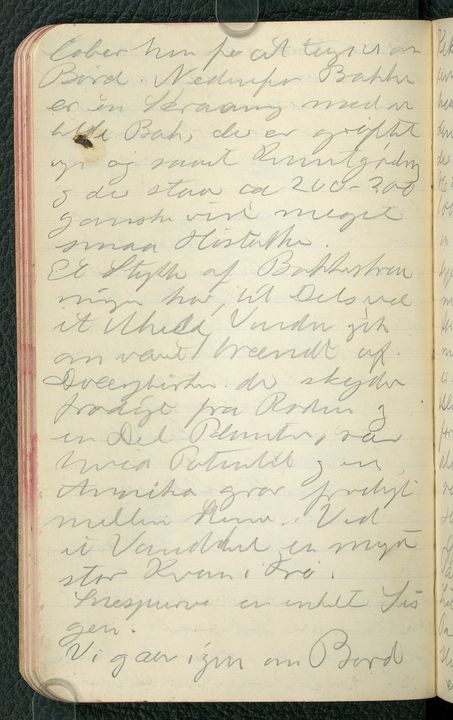 løber hun paa et tegn om
Bord. Nedenfor Bakken
er en Skraaning med
lille Bæk, de er grøftet
og saaet Kunstgødning
og de staa ca 200-300
ganske vist meget
smaa Høstakke.
Et Stykke af Bakkeskraa
ningen har, til Dels ved
et Uheld, Vinden gik
om været brændt af.
Dværgbirken de skyder
frodigt fra Roden og
en Del Planter, saa
hvid Potentil og en
Arnika gror frodigt
mellem Rene. Ved
et Vandhul en meget
stor Kvan i Frø.
Snespurve en enkelt Sis
gen.
Vi gaar igen om Bord